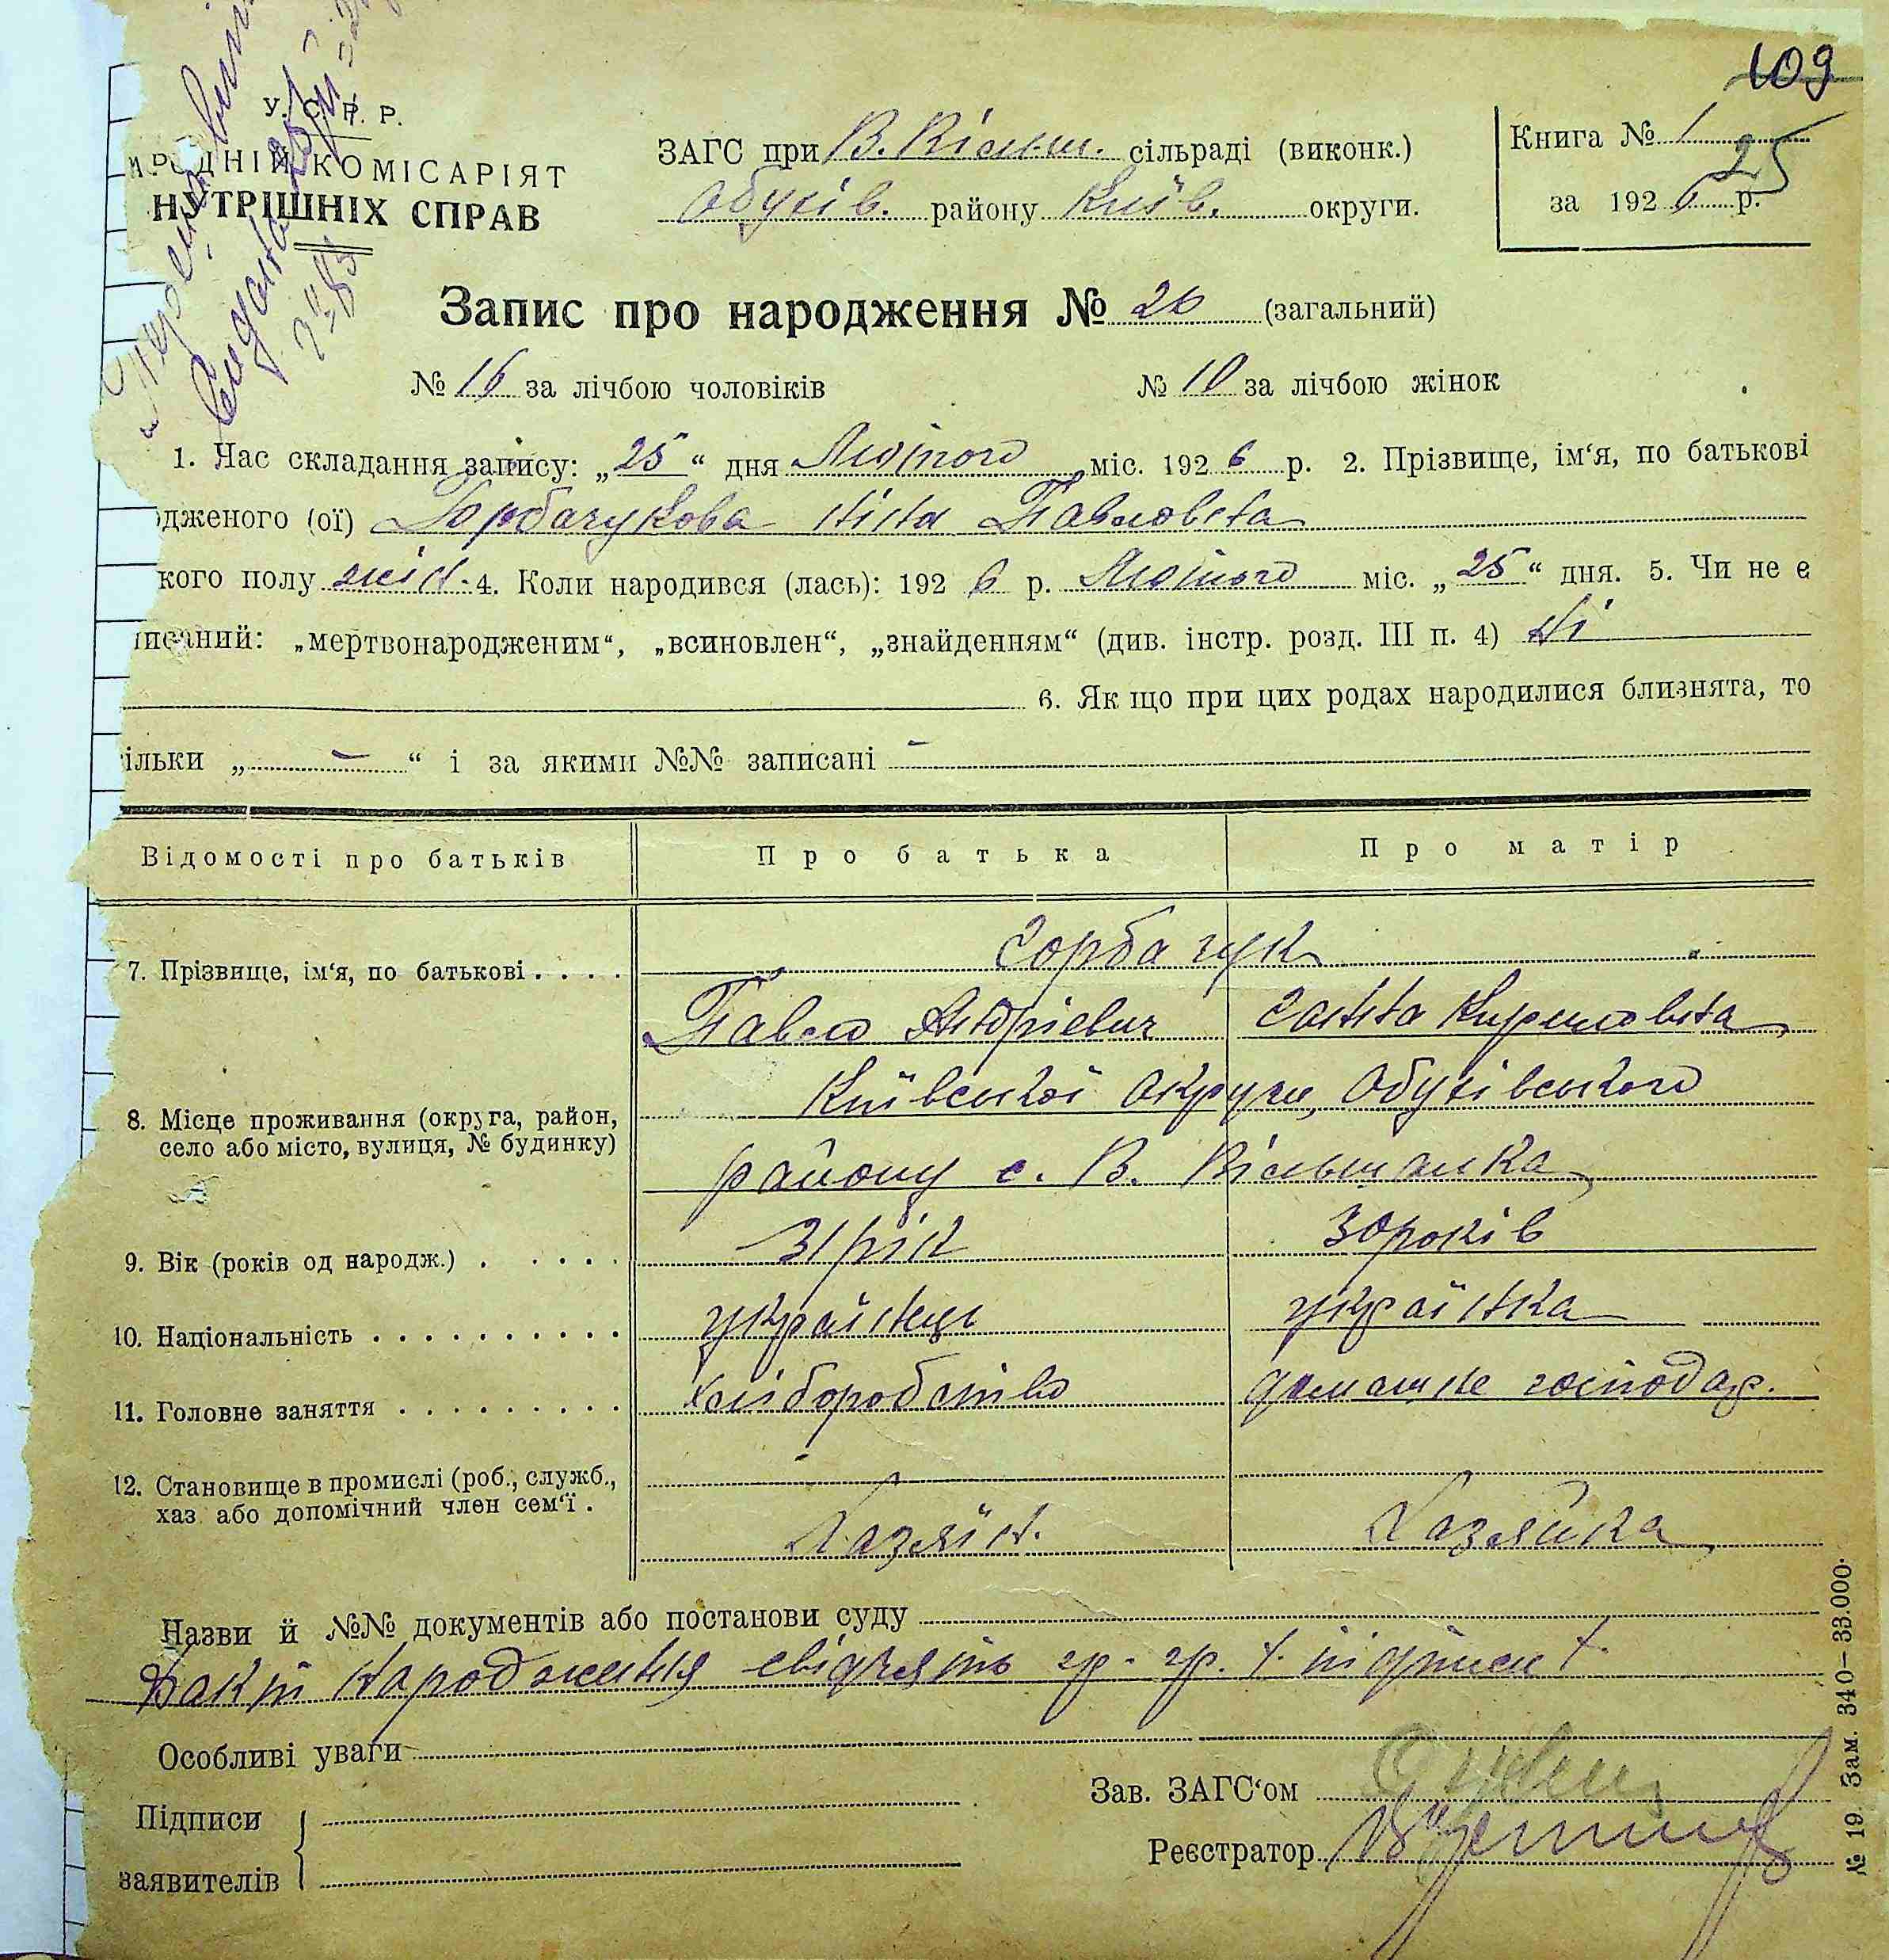 109
У. С. Р. Р.
НАРОДНІЙ КОМІСАРІЯТ
НУТРІШНІХ СПРАВ
ЗАГС при В. Вільш. сільраді (виконк.)
Обухів. району Київ. округи.
Книга № 1
25
за 1926 р.
Запис про народження № 26 (загальний)
№ 16 за лічбою чоловіків № 10 за лічбою жінок
1. Час складання запису: „25“ дня Лютого міс. 1926 р. 2. Прізвище, ім‘я, по батькові
одженого (ої) Горбачукова Ніна Павловна
кого полу жін. 4. Коли народився (лась): 1926 р. Лютого міс. „25“ дня. 5. Чи не є
писаний: „мертвонародженим“, „всиновлен“, „знайденням“ (див. інстр. розд. III п. 4) Ні
6. Як що при цих родах народилися близнята, то
ільки „ – “ і за якими №№ записані –
Відомості про батьків Про батька Про матір
7. Прізвище, ім‘я, по батькові . . . . Горбачук
Павло Андрієвич Ганна Кириловна
8. Місце проживання (округа, район, село або місто, вулиця, № будинку) Київської округи, Обухівського
району с. В. Вільшанка
9. Вік (років од народж.) . . . . . 31 рік 30 років
10. Національність . . . . . . . . . . українець українка
11. Головне заняття . . . . . . . . . хліборобство домашнє господар.
12. Становище в промислі (роб., служб.,
хаз. або допомічний член сем‘ї . Хазяїн. Хазяйка
Назви й №№ документів або постанови суду
Факт народження свідчять гр. гр. /. підписи /.
Особливі уваги
Підписи
заявителів
Зав. ЗАГС‘ом
Реєстратор
№ 19. Зам. 340—33.000.